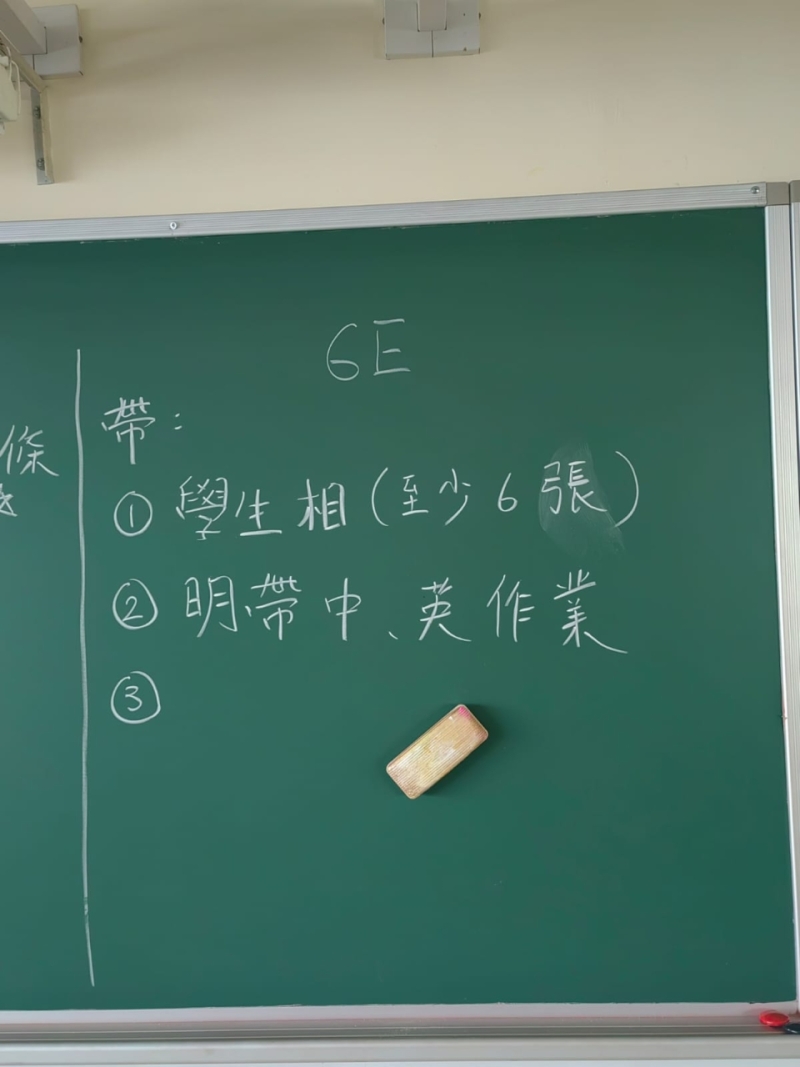 6E
帶：
① 學生相（至少6張）
② 明帶中、英作業
③
條